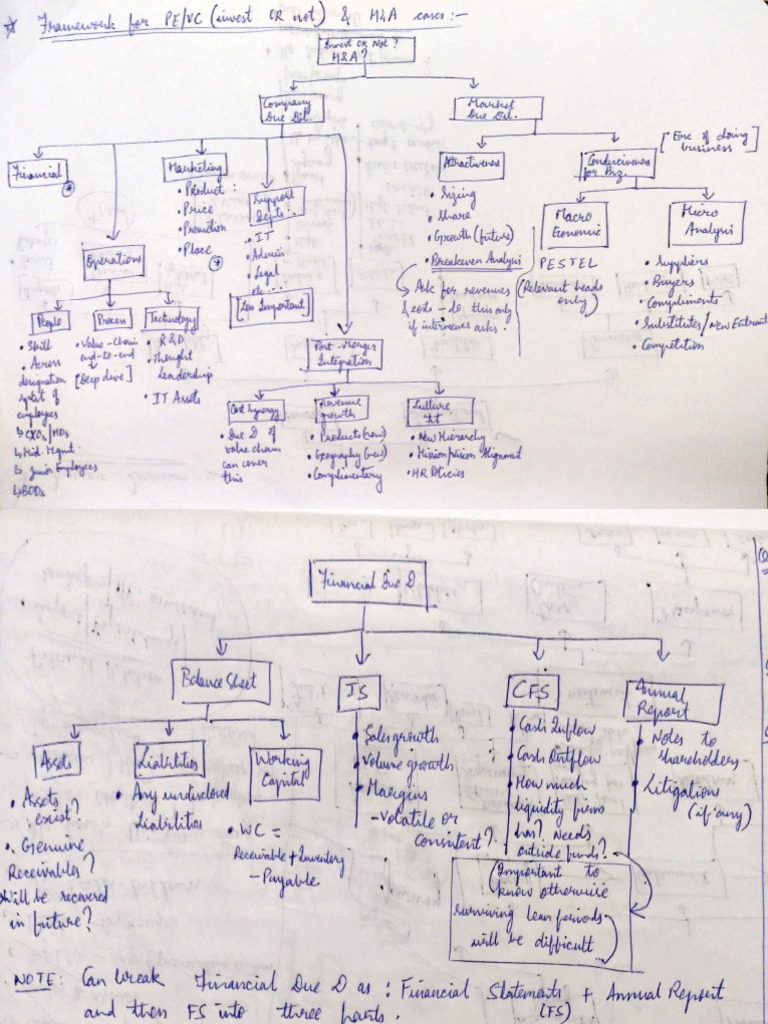 * Framework for PE/VC (invest OR not) & M&A cases:-
Invest OR Not?
M&A?
Company
Due Dil.
Market
Due Dil.
Financial
*
Operations
People
• Skill
• Across
designation
split of
employees
↳ CXOs/MDs
↳ Mid. Mgmt.
↳ Junior Employees
↳ BODs
Process
• Value-Chain
end-to-end
[Deep dive]
Technology
• R&D
• Thought
Leadership
• IT Assets
Marketing
• Product :
• Price
• Promotion
• Place
*
Support
Depts.
• IT
• Admin
• Legal
etc...
[Less Important]
Post-Merger
Integration
Cost Synergy
• Due D of
value chain
can cover
this
Revenue
growth
• Products (new)
• Geography (new)
• Complimentary
Culture
fit
• New Hierarchy
• Mission/Vision Alignment
• HR Policies
Attractiveness
• Sizing
• Share
• Growth (future)
• Breakeven Analysis
Ask for revenues
& costs - do this only
if interviewer asks.
Conduciveness
for Biz.
[Ease of doing
business]
Macro
Economic
PESTEL
(Relevant heads
only)
Micro
Analysis
• Suppliers
• Buyers
• Compliments
• Substitutes/New Entrant
• Competition
Financial Due D
Balance Sheet
Assets
• Assets
exist?
• Genuine
Receivables?
Will be recovered
in future?
Liabilities
• Any undisclosed
liabilities
Working
Capital
• WC =
Receivable + Inventory
- Payable
IS
• Sales growth
• Volume growth
• Margins
- Volatile or
consitent?
CFS
• Cash Inflow
• Cash Outflow
• How much
liquidity firm
has? Needs
outside funds?
(Important to
know otherwise
surviving lean periods
will be difficult)
Annual
Report
• Notes to
shareholders
• Litigations
(if any)
NOTE: Can break Financial Due D as : Financial Statements + Annual Report
(FS)
and then FS into three parts.